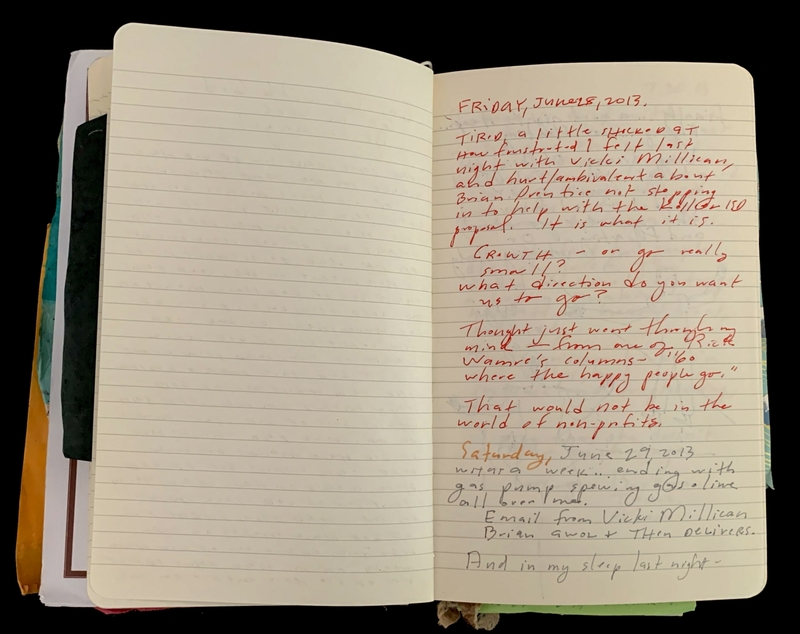 FRIDAY, June 28, 2013.
TIRED, a little SHOCKED AT
How frustrated I felt last
night with Vicki Millican,
and hurt/ambivalent about
Brian Prentice not stepping
in to help with the ISD
proposal. It is what it is.
GROWTH - or go really
small?
what direction do you want
us to go?
Thought just went through my
mind - from one of Rick
Wamre's columns - "Go
where the happy people go."
That would not be in the
world of non-profits.
Saturday, June 29 2013
was a week.. ending with
gas pump spewing gasoline
all over me.
Email from Vicki Millican
Brian AWOL + THEN DELIVERS.
And in my sleep last night -